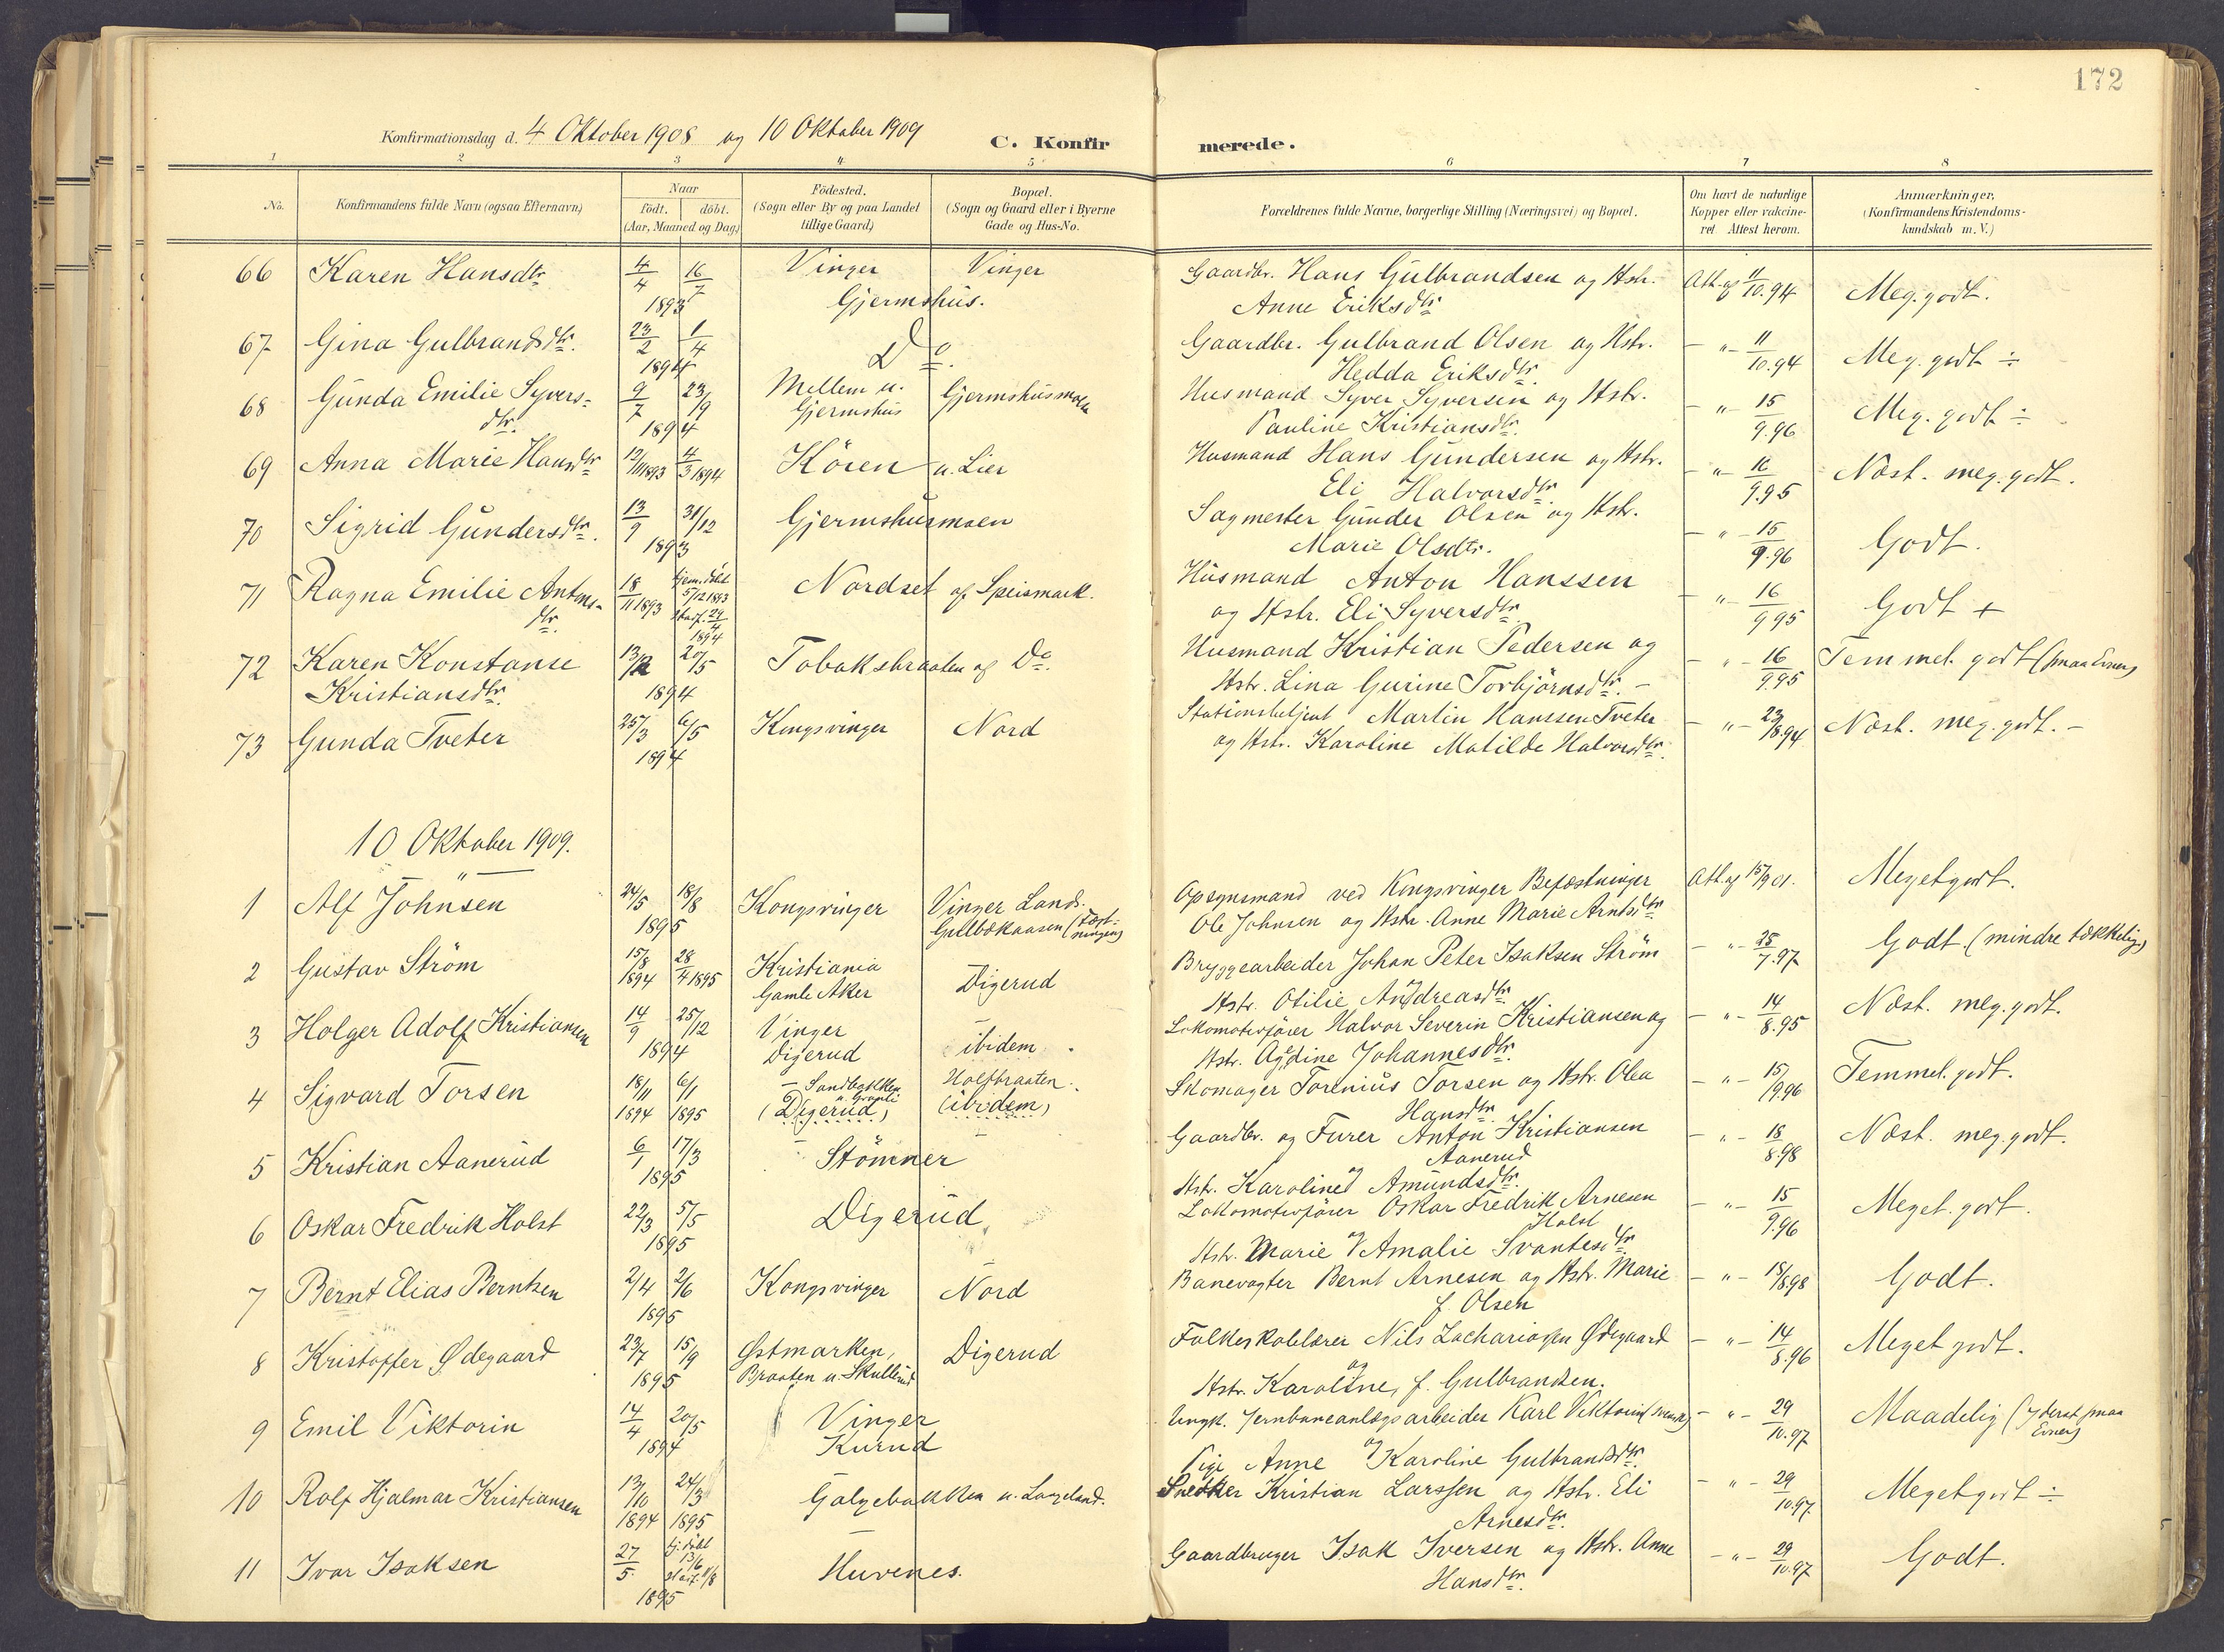 172
Konfirmationsdag d. 4 Oktober 1908 og 10 Oktober 1909
C. Konfirmerede.
1 2 3 4 5 6 7 8
No.
Konfirmandens fulde Navn (ogsaa Efternavn)
Naar
født. døbt.
(Aar, Maaned og Dag)
Fødested.
(Sogn eller By og paa Landet
tillige Gaard)
Bopæl.
(Sogn og Gaard eller i Byerne
Gade og Hus-No.
Forældrenes fulde Navne, borgerlige Stilling (Næringsvei) og Bopæl.
Om havt de naturlige
Kopper eller vakcine-
ret. Attest herom.
Anmærkninger,
(Konfirmandens Kristendoms-
kundskab m. V.)
66 Karen Hansdtr 4/4 16/7 Vinger Vinger Gaardbr. Hans Gulbrandsen og Hstr. Att. af 11/10.94 Meg. godt.
1893 Gjermshus. Anne Eriksdtr
67 Gina Gulbrandsdtr. 23/2 1/4 Do. Gaardbr. Gulbrand Olsen og Hstr. - " - 11/10.94 Meg. godt ÷
1894 Hedda Eriksdtr.
68 Gunda Emilie Syvers- 9/7 23/9 Mellem u. Husmand Syver Syversen og Hstr. - " - 15/9.96 Meg. godt ÷
dtr. 1894 Gjermshus Pauline Kristiansdtr.
69 Anna Marie Hansdtr 12/11 1893 4/3 1894 Kören u. Lier Husmand Hans Gundersen og Hstr. - " - 16/9.95 Næst. meg. godt.
Eli Halvorsdtr.
70 Sigrid Gundersdtr. 13/9 31/12 Gjermshusmoen Sagmester Gunder Olsen og Hstr. - " - 15/9.96 Godt.
1893 Marie Olsdtr.
71 Ragna Emilie Antons- 18/11 1893 hjem. döbt 5/12 1893 Nordset af Speismark. Husmand Anton Hanssen - " - 16/9 95 Godt +
dtr. stadf. 24/4 1894 og Hstr. Eli Syversdtr.
72 Karen Konstanse 13/2 20/5 Tobaksbraaten af Do. Husmand Kristian Pedersen og - " - 16/9.95 Temmel. godt (smaa Evner)
Kristiansdtr. 1894 Hstr. Lina Gurine Torbjörnsdtr. -
73 Gunda Tveter 25/3 6/5 Kongsvinger Nord Stationsbetjent Martin Hanssen Tveter - " - 23/8.94 Næst. meg. godt. -
1894 og Hstr. Karoline Matilde Halvorsdtr.
10 Oktober 1909.
1 Alf Johnsen 24/5 18/8 Kongsvinger Vinger Lands. Opsynsmand ved Kongsvinger Befæstninger Att. af 15/9 01. Meget godt.
1895 (Fæst-ningen) Ole Johnsen og Hstr. Anne Marie Arntsdtr
2 Gustav Ström 15/8 1894 28/4 1895 Kristiania Digerud Bryggearbeider Johan Peter Isaksen Ström - " - 25/7.97 Godt. (mindre tækkelig)
Gamle Aker Hstr. Otilie Andreasdtr
3 Holger Adolf Kristiansen 14/9 25/12 Vinger ibidem. Lokomotivfører Halvor Severin Kristiansen og - " - 14/8.95 Næst. meg. godt.
1894 Digerud Hstr. Johannesdtr.
4 Sigvard Torsen 18/11 1894 6/1 1895 - Sandbakken Holtbraaten. Skomager Torenius Torsen og Hstr. Olea - " - 15/9.96 Temmel. godt.
(Digerud) (ibidem) Hansdtr.
5 Kristian Aanerud 6/1 17/3 Störmner Gaardbr. og Furer Anton Kristiansen - " - 18/8.98 Næst. meg. godt.
1895 Aanerud
og Hstr. Karoline Amundsdtr.
6 Oskar Fredrik Holst 22/3 5/5 Digerud Lokomotivfører Oskar Fredrik Arnesen - " - 15/9.96 Meget. godt.
1895 Holst
og Hstr. Marie Amalie Svantesdtr
7 Bernt Elias Berntsen 2/4 2/6 Kongsvinger Nord Banevogter Bernt Arnesen og Hstr. Marie - " - 18/8.98 Godt.
1895 f. Olsen
8 Kristoffer Ødegaard 23/7 15/9 Østmarken, Digerud Folkeskolelærer Nils Zachariasen Ødegaard - " - 14/8.96 Meget godt.
1895 Braaten u. Skullerud og Hstr. Karoline, f. Gulbrandsen.
9 Emil Viktorin 14/4 20/5 Vinger Ungk. Jernbaneanlægsarbeider Karl Viktorin (svensk) - " - 29/10.97 Maadelig (yderst smaa Evner)
1894 Kurud og Pige Anne Karoline Gulbrandsdtr.
10 Rolf Hjalmar Kristiansen 13/10 1894 24/3 1895 Galgebakken u. Langeland. Snedker Kristian Larssen og Hstr. Eli - " - 29/10.97 Meget godt ÷
Arnesdtr.
11 Ivar Isaksen 27/5 hj. döbt 13/6 stadf. 11/8 Huvenes. Gaardbruger Isak Iversen og Hstr. Anne - " - 29/10.97 Godt.
1895 Hansdtr.